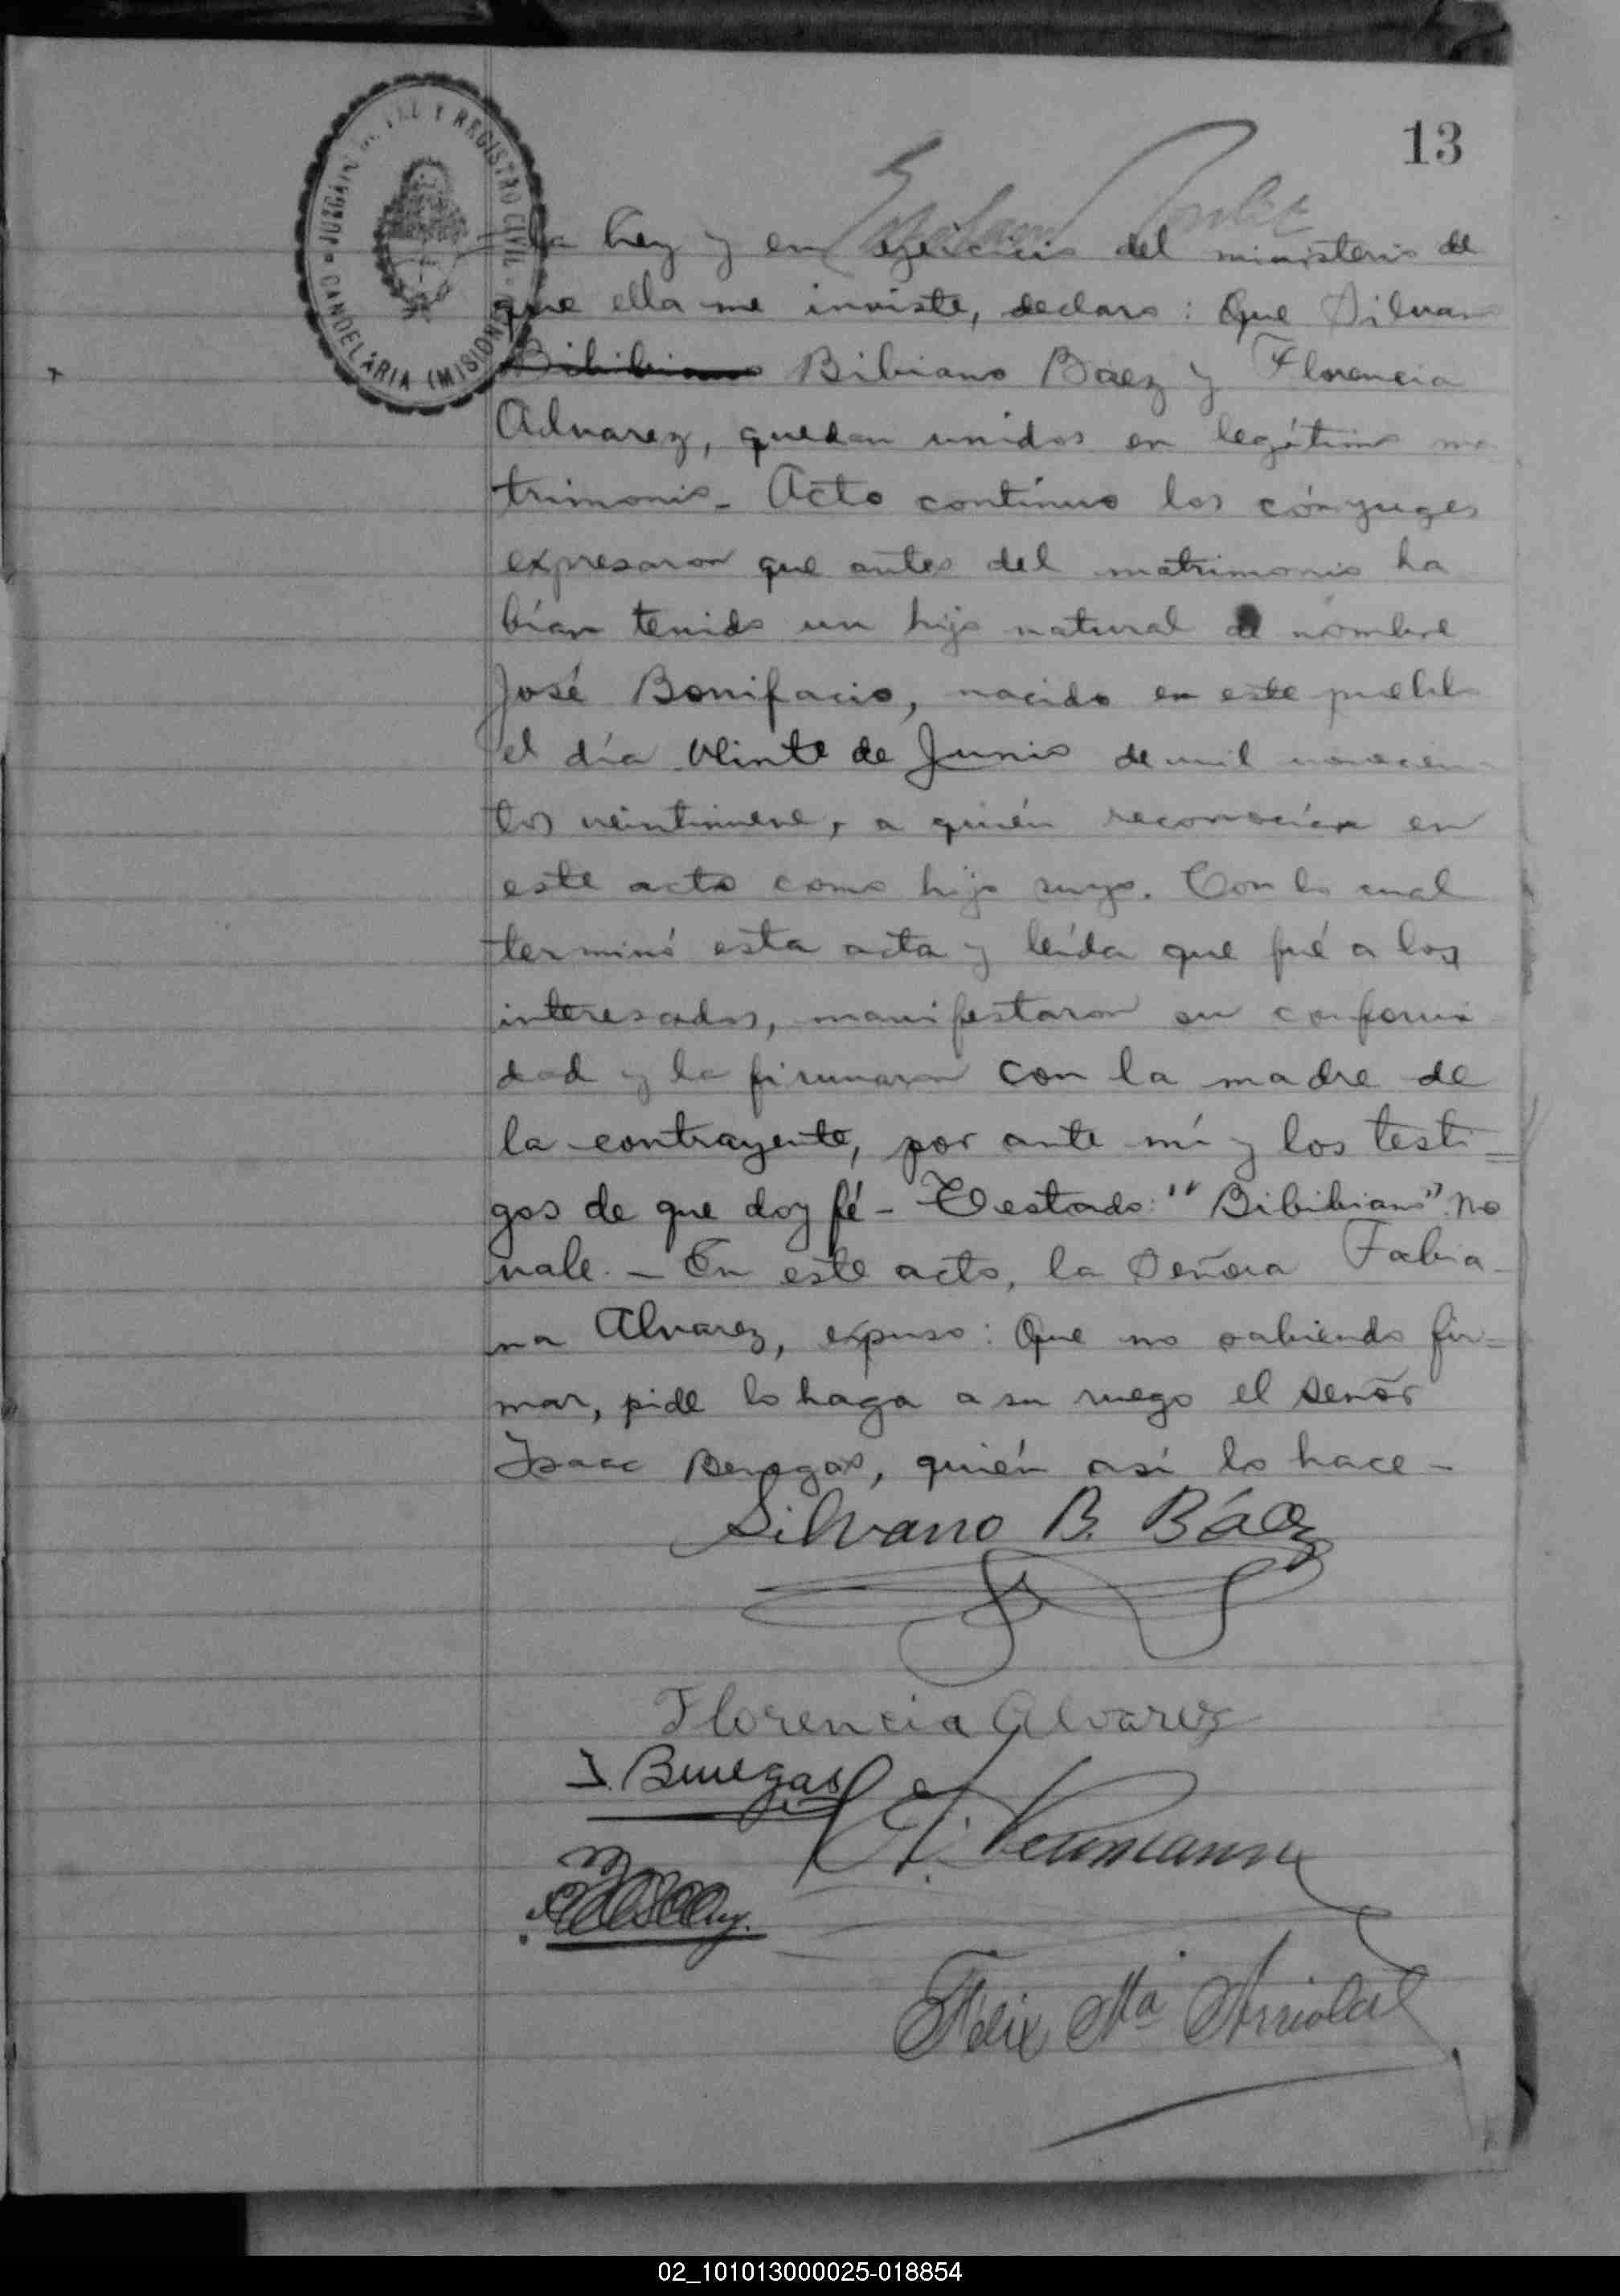 13
JUZGADO DE PAZ Y REGISTRO CIVIL
CANDELARIA (MISIONES)
la Ley y en ejercicio del ministerio de
que ella me inviste, declaro: Que Silvano
~~Bibibiano~~ Bibiano Báez y Florencia
Advarez, quedan unidos en legítimo ma
trimonio - Acto contínuo los cónyuges
expresaron que antes del matrimonio ha
bían tenido un hijo natural de nombre
José Bonifacio, nacido en este pueblo
el día veinte de Junio de mil novecien
tos veintinueve, a quién reconocían en
este acto como hijo suyo. Con lo cual
terminó esta acta y leída que fué a los
interesados, manifestaron su conformi
dad y la firmaron con la madre de
la contrayente, por ante mí y los testi=
gos de que doy fé - Testado: "Bibibiano" No
vale. - En este acto, la Señora Fabia-
na Alvarez, expuso: Que no sabiendo fir=
mar, pide lo haga a su ruego el señor
Isaac Benegas, quién así lo hace -
Silvano B. Báez
Florencia Alvarez
I. Benegas
Neumann
Félix Ma Arriola
02_101013000025-018854